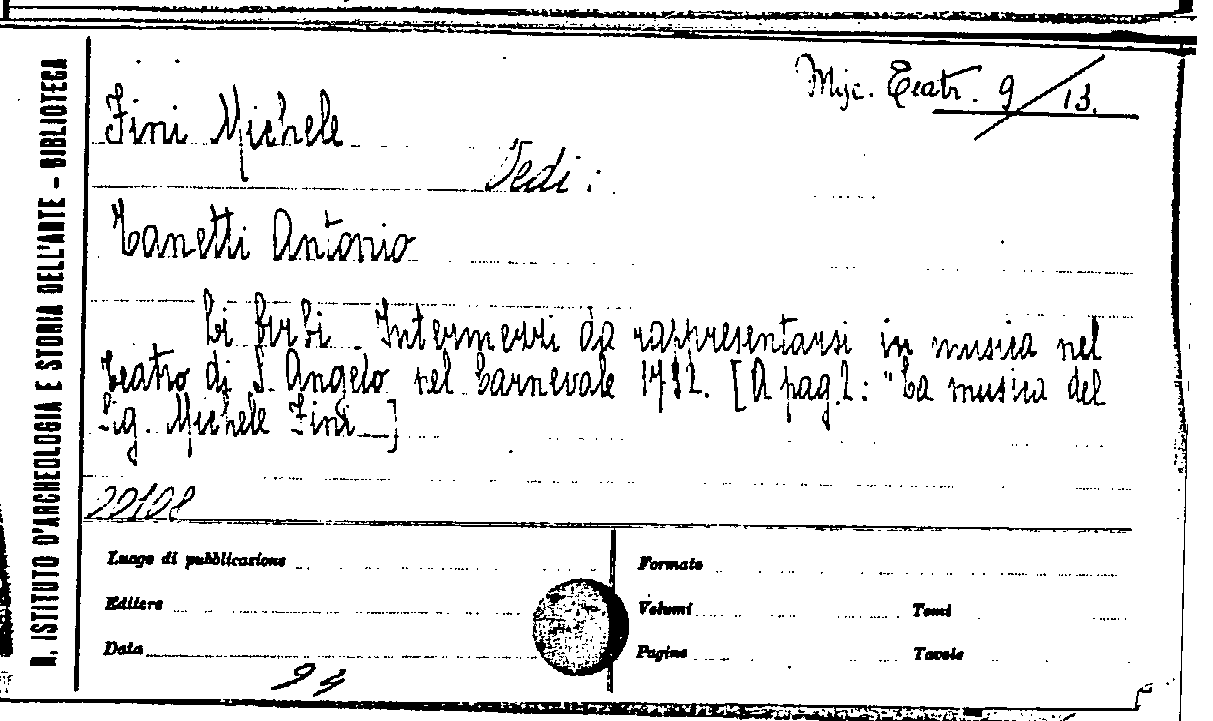 R. ISTITUTO D'ARCHEOLOGIA E STORIA DELL'ARTE – BIBLIOTECA
Misc. Teatr. 9/13.
Fini Michele
Vedi:
Zanetti Antonio
Li birbi. Intermezzi da rappresentarsi in musica nel
Teatro di S. Angelo nel Carnevale 1732. [A pag. 2: "La musica del
Sig. Michele Fini_]
22108
Luogo di pubblicazione
Formato
Editore
Volumi
Tomi
Data
Pagine
Tavole
94